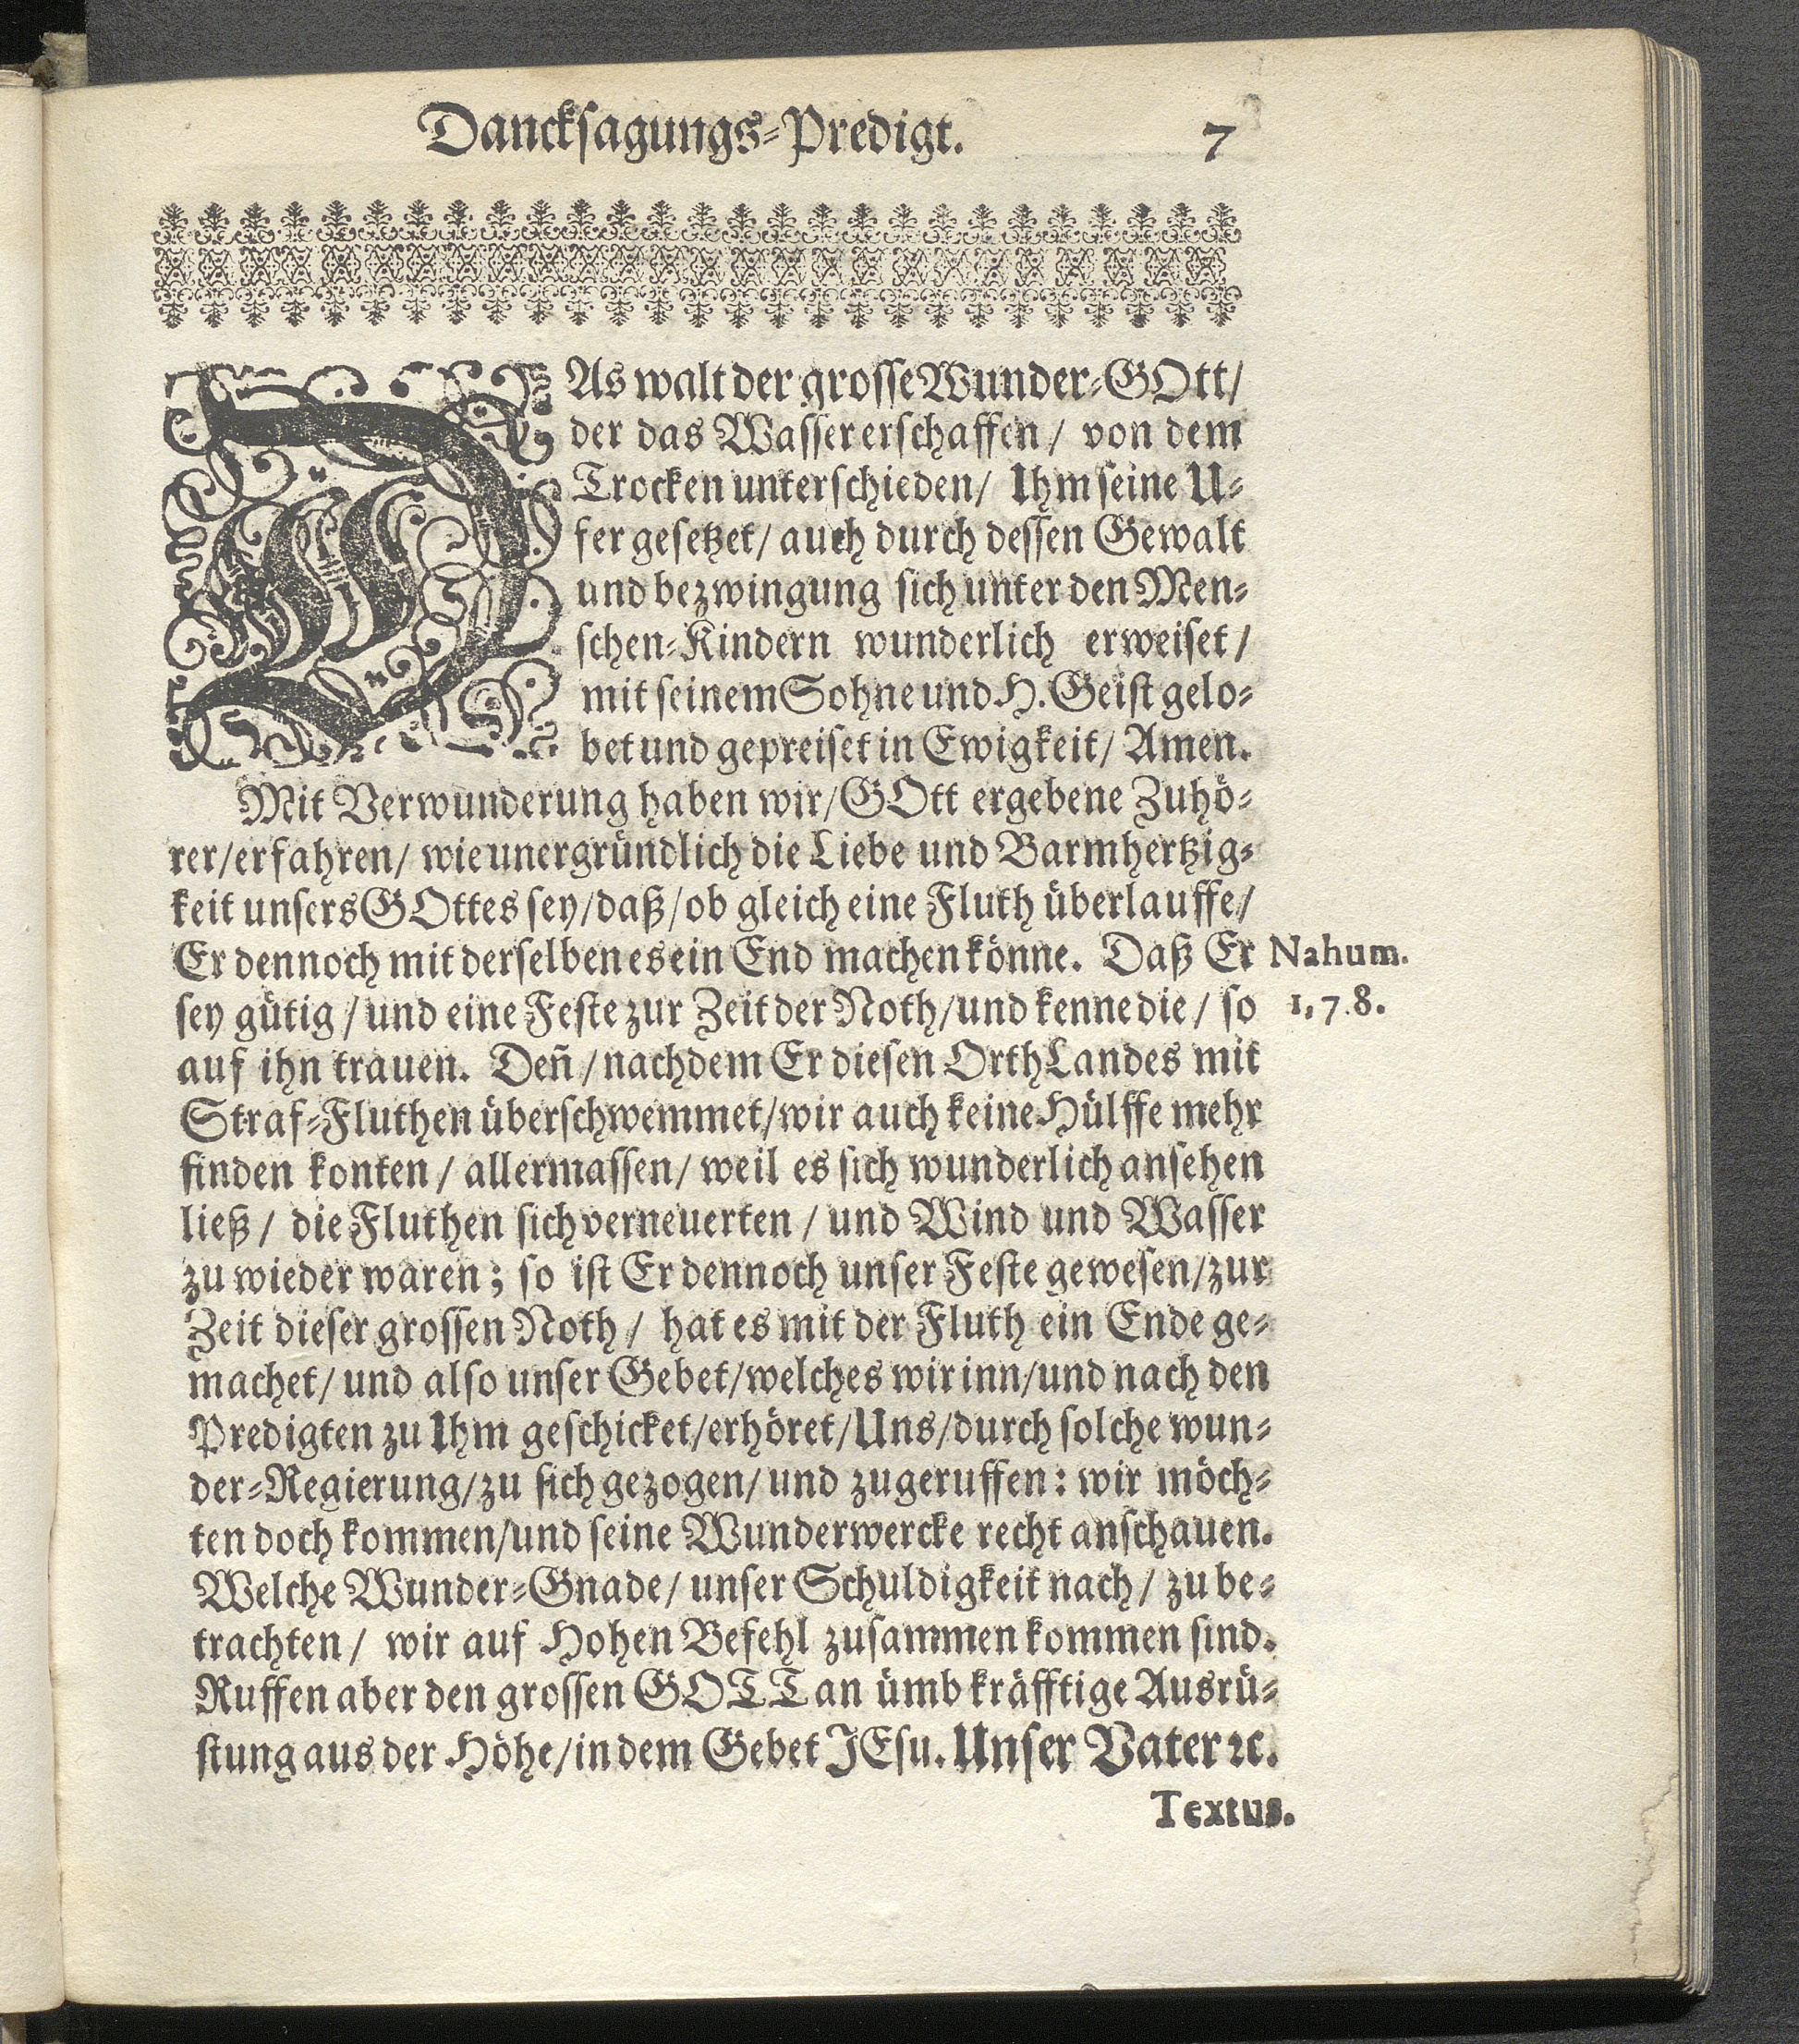 Danckſagungs-Predigt. 7
DAs walt der groſſe Wunder-GOtt/
der das Waſſer erſchaffen/ von dem
Trocken unterſchieden/ Ihm ſeine U-
fer geſetzet/ auch durch deſſen Gewalt
und bezwingung ſich unter den Men-
ſchen-Kindern wunderlich erweiſet/
mit ſeinem Sohne und H. Geiſt gelo-
bet und gepreiſet in Ewigkeit/ Amen.
Mit Verwunderung haben wir/ GOtt ergebene Zuhö-
rer/ erfahren/ wie unergründlich die Liebe und Barmhertzig-
keit unſers GOttes ſey/ daß/ ob gleich eine Fluth überlauffe/
Er dennoch mit derſelben es ein End machen könne. Daß Er Nahum.
ſey gütig/ und eine Feſte zur Zeit der Noth/ und kenne die/ ſo 1, 7. 8.
auf ihn trauen. Deñ/ nachdem Er dieſen Orth Landes mit
Straf-Fluthen überſchwemmet/ wir auch keine Hülffe mehr
finden konten/ allermaſſen/ weil es ſich wunderlich anſehen
ließ/ die Fluthen ſich verneuerten/ und Wind und Waſſer
zu wieder waren; ſo iſt Er dennoch unſer Feſte geweſen/ zur
Zeit dieſer groſſen Noth/ hat es mit der Fluth ein Ende ge-
machet/ und alſo unſer Gebet/ welches wir inn/ und nach den
Predigten zu Ihm geſchicket/ erhöret/ Uns/ durch ſolche wun-
der-Regierung/ zu ſich gezogen/ und zugeruffen: wir möch-
ten doch kommen/ und ſeine Wunderwercke recht anſchauen.
Welche Wunder-Gnade/ unſer Schuldigkeit nach/ zu be-
trachten/ wir auf Hohen Befehl zuſammen kommen ſind.
Ruffen aber den groſſen GOTT an ümb kräfftige Ausrü-
ſtung aus der Höhe/ in dem Gebet JEſu. Unſer Vater ꝛc.
Textus.